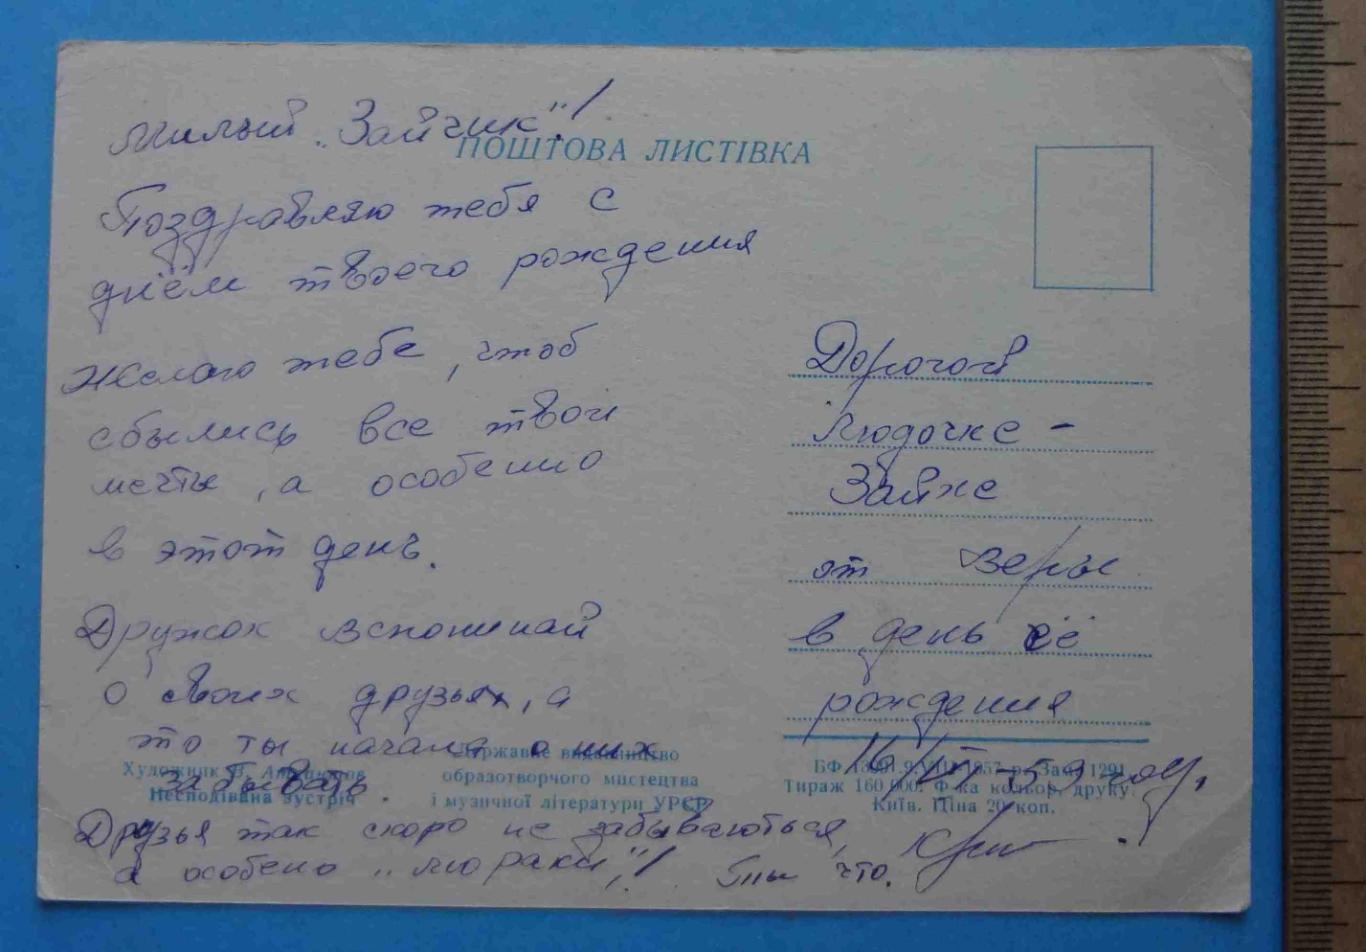 Милый „Зайчик“!
ПОШТОВА ЛИСТІВКА
Поздравляю тебя с
днём твоего рождения
Желаю тебе, чтоб
сбылись все твои
мечты, а особенно
в этот день.
Дружок вспоминай
о своих друзьях, а
то ты начала о них
забывать.
Друзья так скоро не забываються,
а особено
что.
Дорогой
Людочке -
Зайке
от Веры
в день её
рождения
59 году.
Художник В.
Несподівана зустріч
Державне видавництво
образотворчого мистецтва
і музичної літератури УРСР
1957 р. Зам. 1291
Тираж 160 000. Ф-ка кольор. друку.
Київ. Ціна 20 коп.